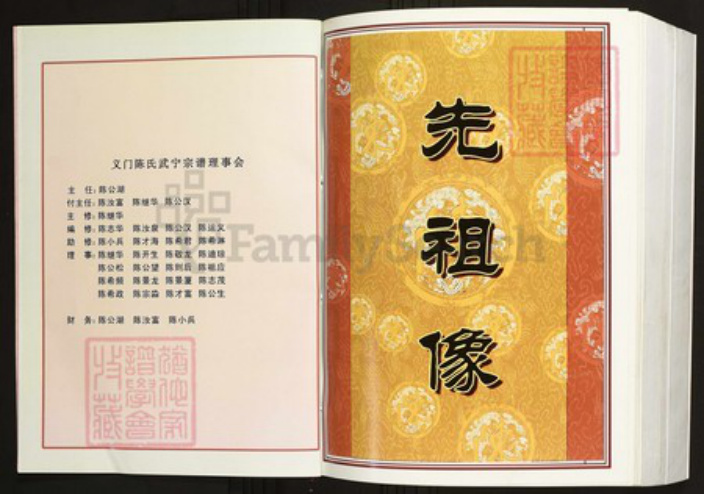 义门陈氏武宁宗谱理事会
主 任：陈公湖
付主任：陈汝富 陈继华 陈公汉
主 修：陈继华
编 修：陈志华 陈汝泉 陈公汉 陈运义
助 修：陈小兵 陈才海 陈希君 陈希淋
理 事：陈继华 陈开生 陈敬龙 陈迪琼
陈公松 陈公望 陈则后 陈祖应
陈希频 陈景龙 陈景董 陈志茂
陈希政 陈宗淼 陈才富 陈公生
财 务：陈公湖 陈汝富 陈小兵
先祖像
FamilySearch